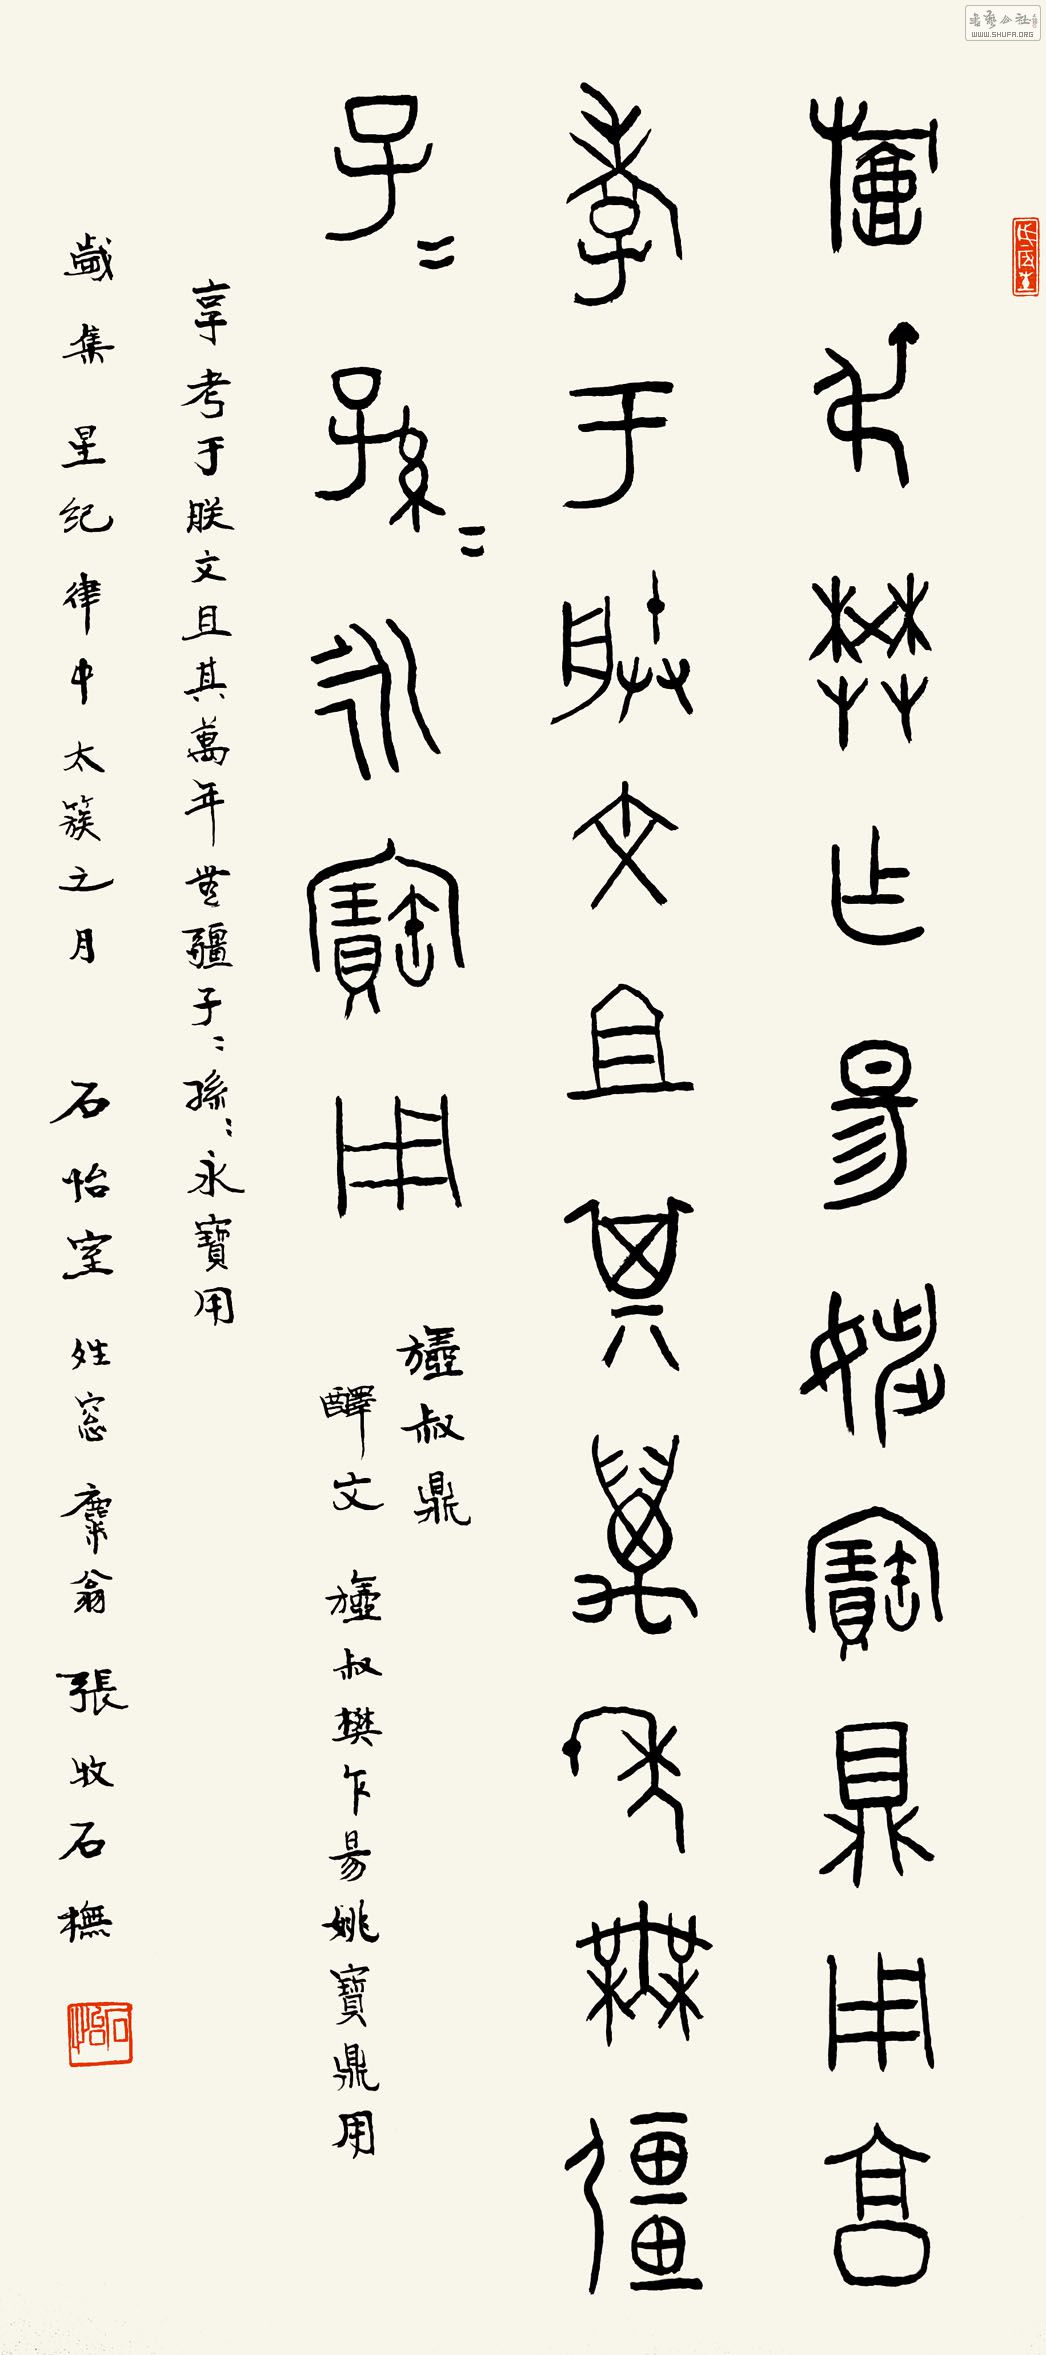 叔樊乍昜姚寶鼎用享
孝于朕文且其萬年無彊
子〓孫〓永寶用
叔鼎
釋文 叔樊乍昜姚寶鼎用
享考于朕文且其萬年無疆子〻孫〻永寶用
歲集星紀律中太簇之月 石怡室 姓窓 麋翁 張牧石橅
石怡
WWW.SHUFA.ORG